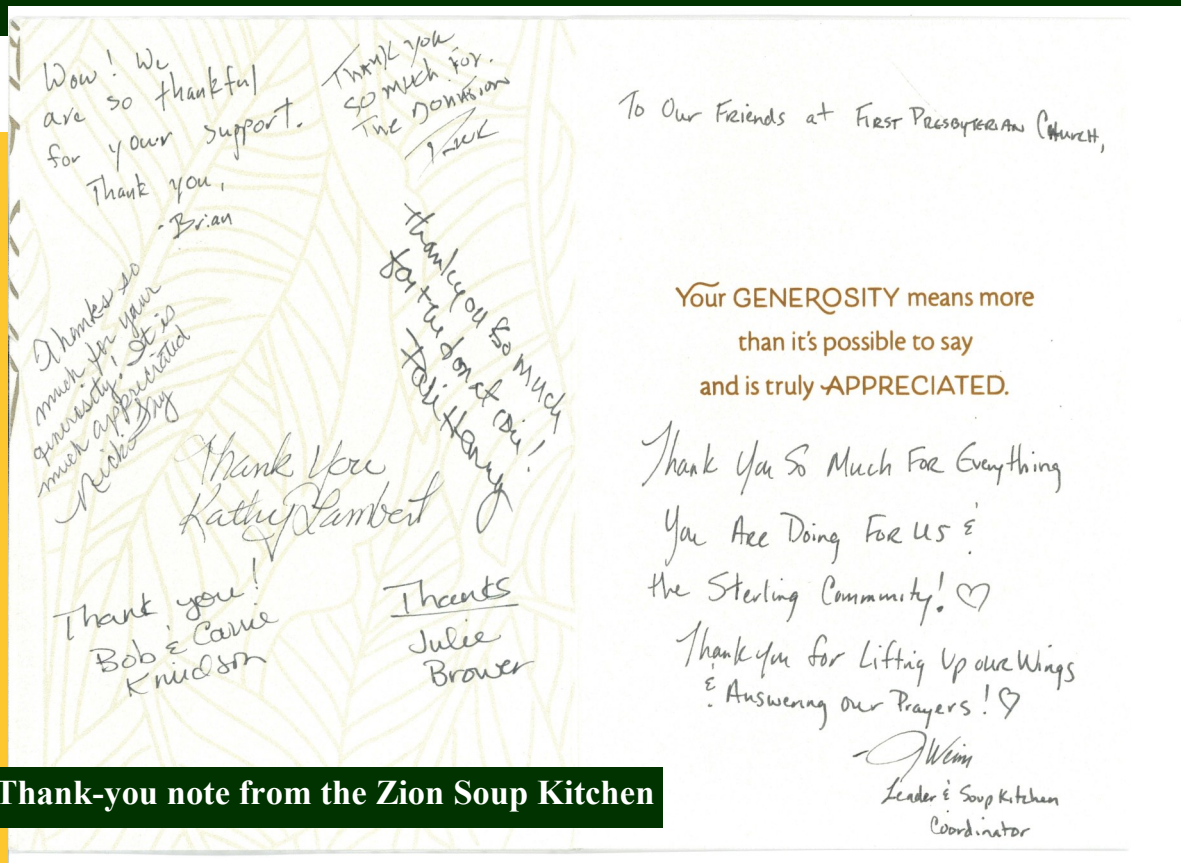 Wow! We
are so thankful
for your support.
Thank you,
- Brian
THANK you
so much for.
The DONATION
Thanks so
much for your
generosity! It is
much appreciated
Nicki
thank you so much
for the donation!
Thank You
Kathy Lambert
Thank you!
Bob & Carrie
Knudson
Thanks
Julie
Brower
To Our Friends at First Presbyterian Church,
Your GENEROSITY means more
than it's possible to say
and is truly APPRECIATED.
Thank You So Much For Everything
You Are Doing For Us &
the Sterling Community! ♡
Thank you for Lifting Up our Wings
& Answering our Prayers! ♡
Leader & Soup Kitchen
Coordinator
Thank-you note from the Zion Soup Kitchen